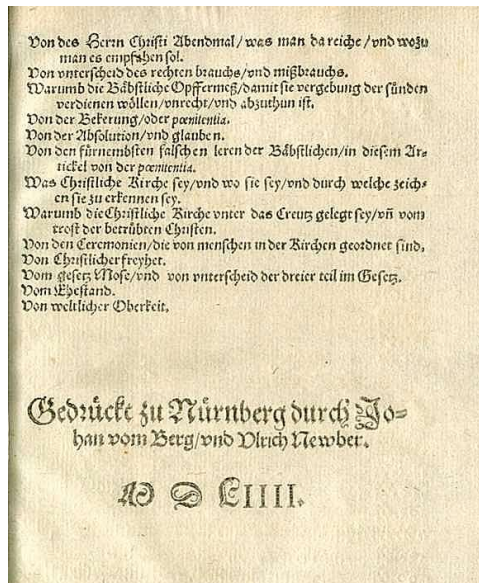 Von des Herrn Christi Abendmal/was man da reiche/vnd wozu
man es empfahen sol.
Von vnterscheid des rechten brauchs/vnd mißbrauchs.
Warumb die Bäbstliche Opffermeß/damit sie vergebung der sünden
verdienen wöllen/vnrecht/vnd abzuthun ist.
Von der Bekerung/oder pœnitentia.
Von der Absolution/vnd glauben.
Von den fürnembsten falschen leren der Bäbstlichen/in diesem Ar⸗
tickel von der pœnitentia.
Was Christliche Kirche sey/vnd wo sie sey/vnd durch welche zeich⸗
en sie zu erkennen sey.
Warumb die Christliche Kirche vnter das Creutz gelegt sey/vn̄ vom
trost der betrübten Christen.
Von den Ceremonien/die von menschen in der Kirchen geordnet sind.
Von Christlicher freyhet.
Vom gesetz Mose/vnd von vnterscheid der dreier teil im Gesetz.
Vom Ehestand.
Von weltlicher Oberkeit.
Gedrückt zu Nürnberg durch Jo⸗
han vom Berg/vnd Vlrich Newber.
M D LIIII.